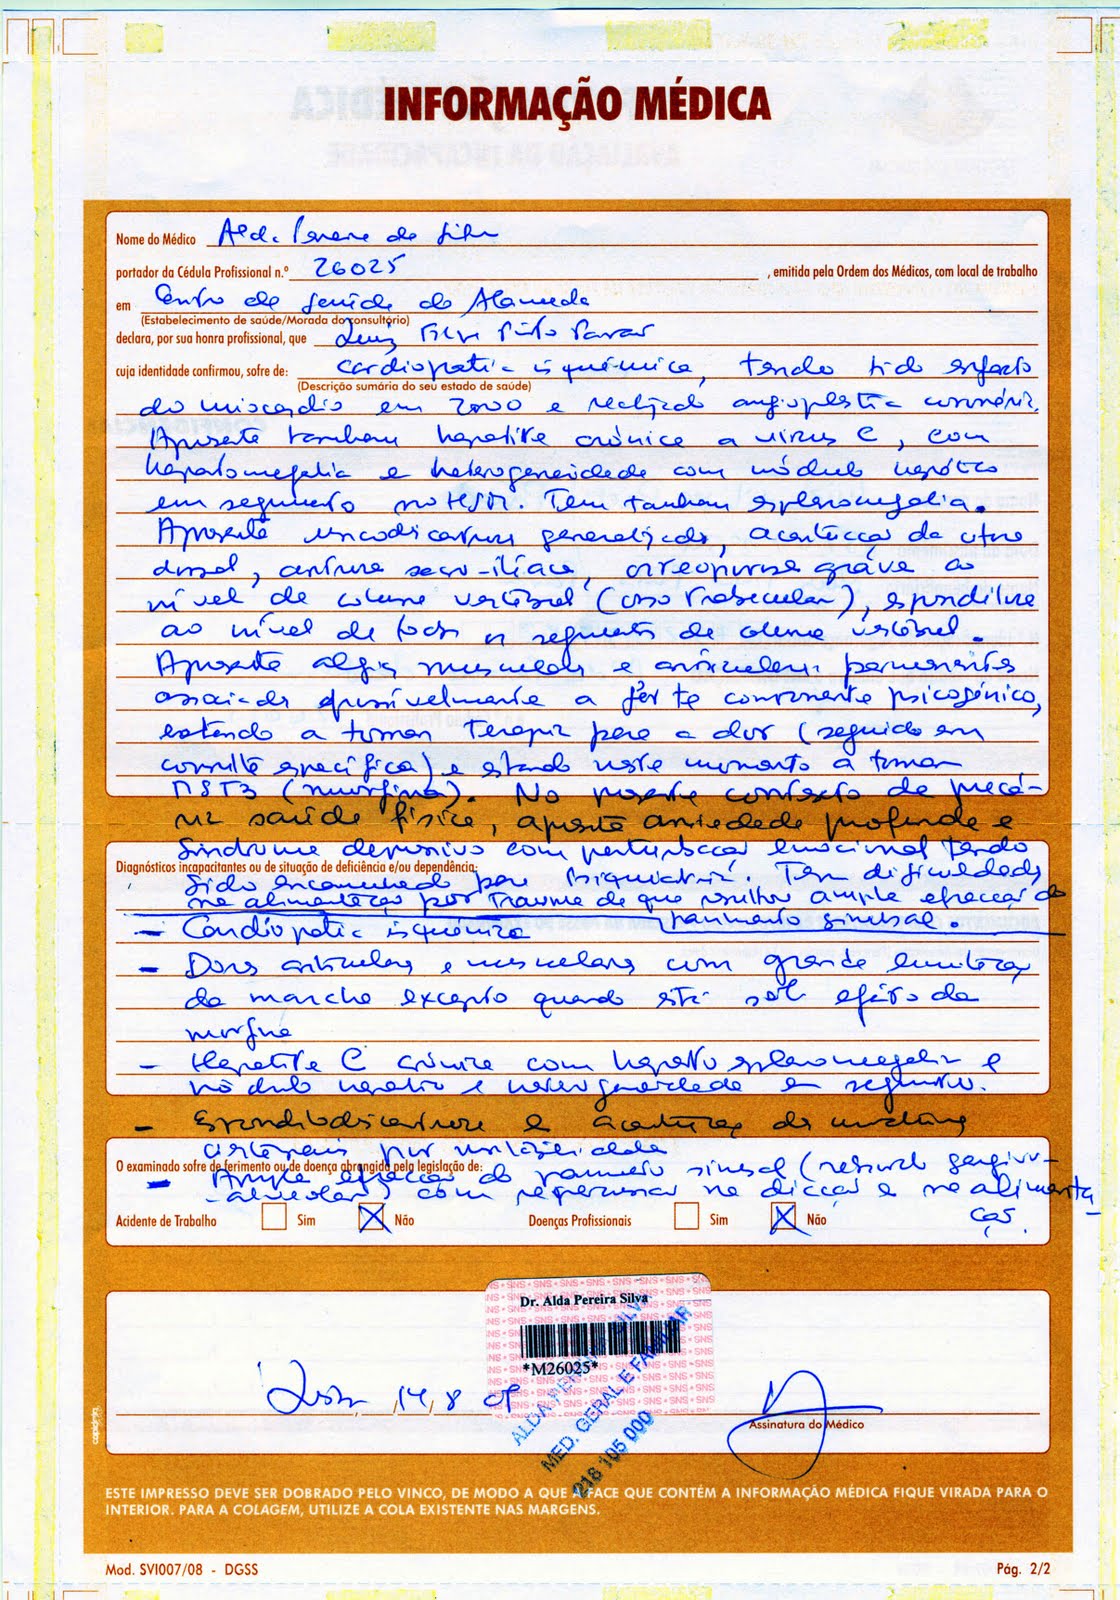 INFORMAÇÃO MÉDICA
Nome do Médico Alda Pereira da Silva
portador da Cédula Profissional n.º 26025 , emitida pela Ordem dos Médicos, com local de trabalho
em Centro de Saúde da Alameda
(Estabelecimento de saúde/Morada do consultório)
declara, por sua honra profissional, que Luiz Pinto
cuja identidade confirmou, sofre de: cardiopatia isquémica, tendo tido enfarte
(Descrição sumária do seu estado de saúde)
do miocárdio em 2000 e realizado angioplastia coronária.
Apresenta também hepatite crónica a vírus C, com
hepatomegalia e heterogeneidade com nódulo hepático
em seguimento no HSM. Tem também esplenomegalia.
Apresenta uncodiscartrose generalizada, acentuação da cifose
dorsal, artrose sacro-ilíaca, osteoporose grave ao
nível da coluna vertebral (osso trabecular), espondilose
ao nível de todos os segmentos da coluna vertebral.
Apresenta algias musculares e articulares permanentes
associadas possívelmente a forte componente psicogénico,
estando a tomar terapia para a dor (seguido em
consulta específica) e estando neste momento a tomar
MST3 (morfina). No presente contexto de precá-
ria saúde física, apresenta ansiedade profunda e
Síndrome depressivo com perturbação emocional tendo
Diagnósticos incapacitantes ou de situação de deficiência e/ou dependência:
sido encaminhado para Psiquiatria. Tem dificuldades
na alimentação por trauma de que resultou ampla efracção do
pavimento sinusal.
- Cardiopatia isquémica
- Dores articulares e musculares com grande limitação
da marcha excepto quando está sob efeito da
morfina
- Hepatite C crónica com hepato esplenomegalia e
nódulo hepático e heterogeneidade em seguimento.
- Espondilodiscartrose e acentuação da
por
O examinado sofre de ferimento ou de doença abrangida pela legislação de:
- Ampla efracção do pavimento sinusal (rebordo gengivo-
-alveolar) com repercussão na dicção e na alimenta-
ção.
Acidente de Trabalho Sim X Não Doenças Profissionais Sim X Não
SNS
Dr. Alda Pereira Silva
*M26025*
ALDA PEREIRA SILVA
MED. GERAL E FAMILIAR
218 105 000
Lisboa, 14, 8 09
Assinatura do Médico
ESTE IMPRESSO DEVE SER DOBRADO PELO VINCO, DE MODO A QUE A FACE QUE CONTÉM A INFORMAÇÃO MÉDICA FIQUE VIRADA PARA O
INTERIOR. PARA A COLAGEM, UTILIZE A COLA EXISTENTE NAS MARGENS.
Mod. SVI007/08 - DGSS Pág. 2/2